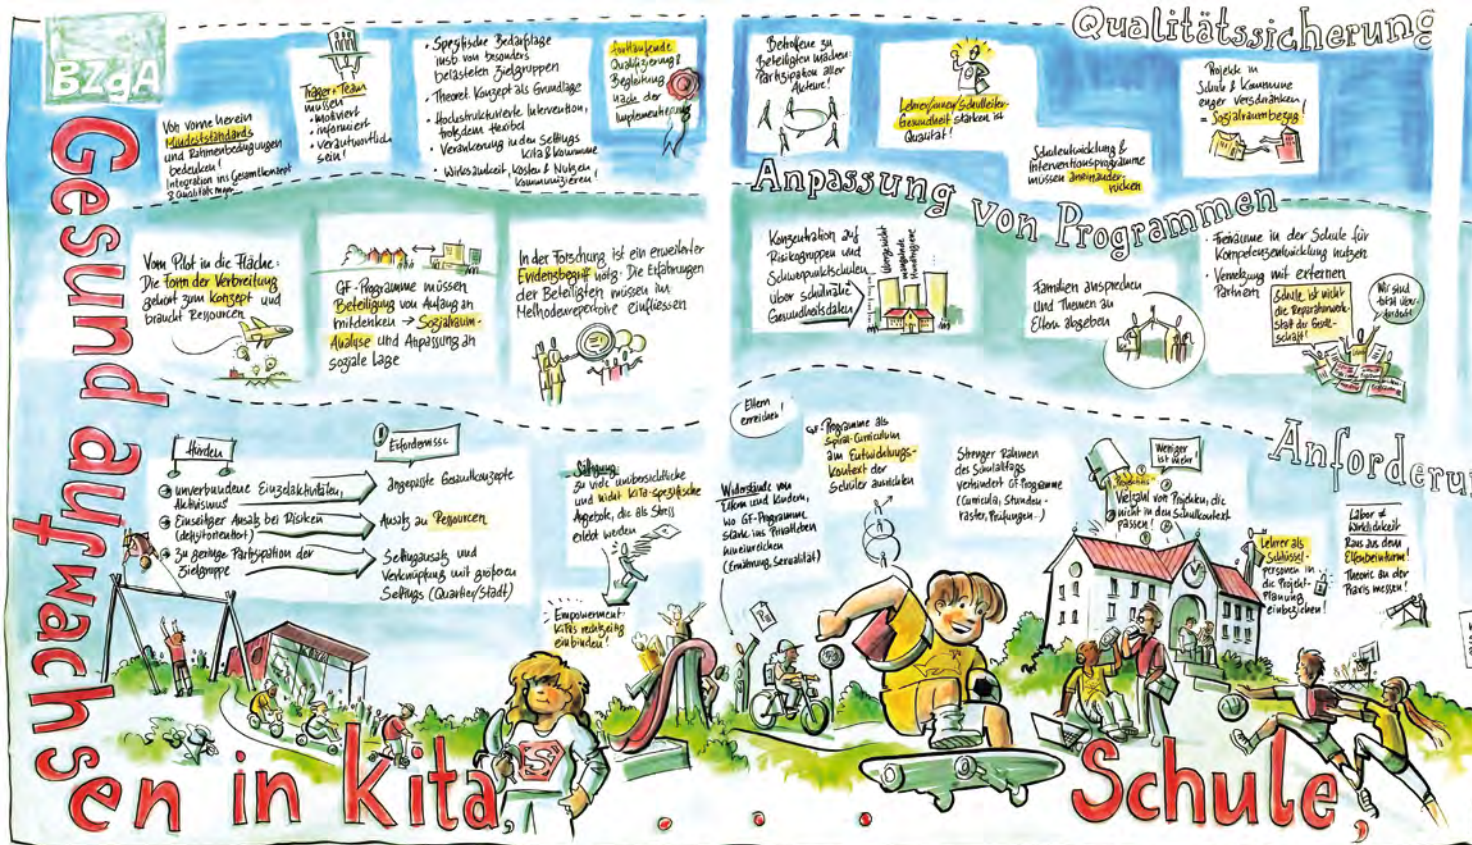 BZgA
Gesund aufwachsen in Kita, ... Schule,
Qualitätssicherung
Von vorne herein
Mindeststandards
und Rahmenbedingungen
bedenken!
Integration ins Gesamtkonzept
Träger + Team
müssen
• motiviert
• informiert
• verantwortlich
sein!
• Spezifische Bedarfslage
insb von besonders
belasteten Zielgruppen
• Theoret. Konzept als Grundlage
• Hochstrukturierte Intervention,
trotzdem flexibel
• Verankerung in den Settings
Kita & Kommune
• Wirksamkeit, Kosten & Nutzen
kommunizieren!
fortlaufende
Qualifizierung &
Begleitung
nach der
Implementierung
Betroffene zu
Beteiligten machen:
Partizipation aller
Akteure!
Lehrer/innen/Schulleiter-
Gesundheit stärken ist
Qualität!
Schulentwicklung &
Interventionsprogramme
müssen aneinander-
rücken
Projekte in
Schule & Kommune
enger verschränken!
= Sozialraumbezug!
Anpassung von Programmen
Vom Pilot in die Fläche:
Die Form der Verbreitung
gehört zum Konzept und
braucht Ressourcen
GF-Programme müssen
Beteiligung von Anfang an
mitdenken → Sozialraum-
Analyse und Anpassung an
soziale Lage
In der Forschung ist ein erweiterter
Evidenzbegriff nötig: Die Erfahrungen
der Beteiligten müssen im
Methodenrepertoire einfliessen
Konzentration auf
Risikogruppen und
Schwerpunktschulen
über schulnahe
Gesundheitsdaten
Übergewicht
mangelnde
Mundhygiene
Familien ansprechen
und Themen an
Eltern abgeben
• Freiräume in der Schule für
Kompetenzentwicklung nutzen
• Vernetzung mit externen
Partnern
Schule ist nicht
die Reparaturwerk-
statt der Gesell-
schaft!
Wir sind
total über-
fordert!
Anforderun
Hürden
! Erfordernisse
unverbundene Einzelaktivitäten,
Aktivismus
angepasste Gesamtkonzepte
Einseitiger Ansatz bei Risiken
(defizitorientiert)
Ansatz an Ressourcen
zu geringe Partizipation der
Zielgruppe
Settingansatz und
Verknüpfung mit größeren
Settings (Quartier/Stadt)
Sättigung:
zu viele unübersichtliche
und nicht Kita-spezifische
Angebote, die als Stress
erlebt werden
Empowerment:
Kitas rechtzeitig
einbinden!
Kita
S
Eltern
erreichen!
Widerstände von
Eltern und Kindern,
wo GF-Programme
stark ins Privatleben
hineinreichen
(Ernährung, Sexualität)
GF-Programme als
Spiral-Curriculum
am Entwicklungs-
kontext der
Schüler ausrichten
Strenger Rahmen
des Schulalltags
verhindert GF-Programme
(Curricula, Stunden-
raster, Prüfungen...)
Weniger
ist mehr!
Vielzahl von Projekten, die
nicht in den Schulkontext
passen!
Lehrer als
Schlüssel-
personen in
die Projekt-
Planung
einbeziehen!
Labor ≠
Wirklichkeit
Raus aus dem
Elfenbeinturm!
Theorie an der
Praxis messen!